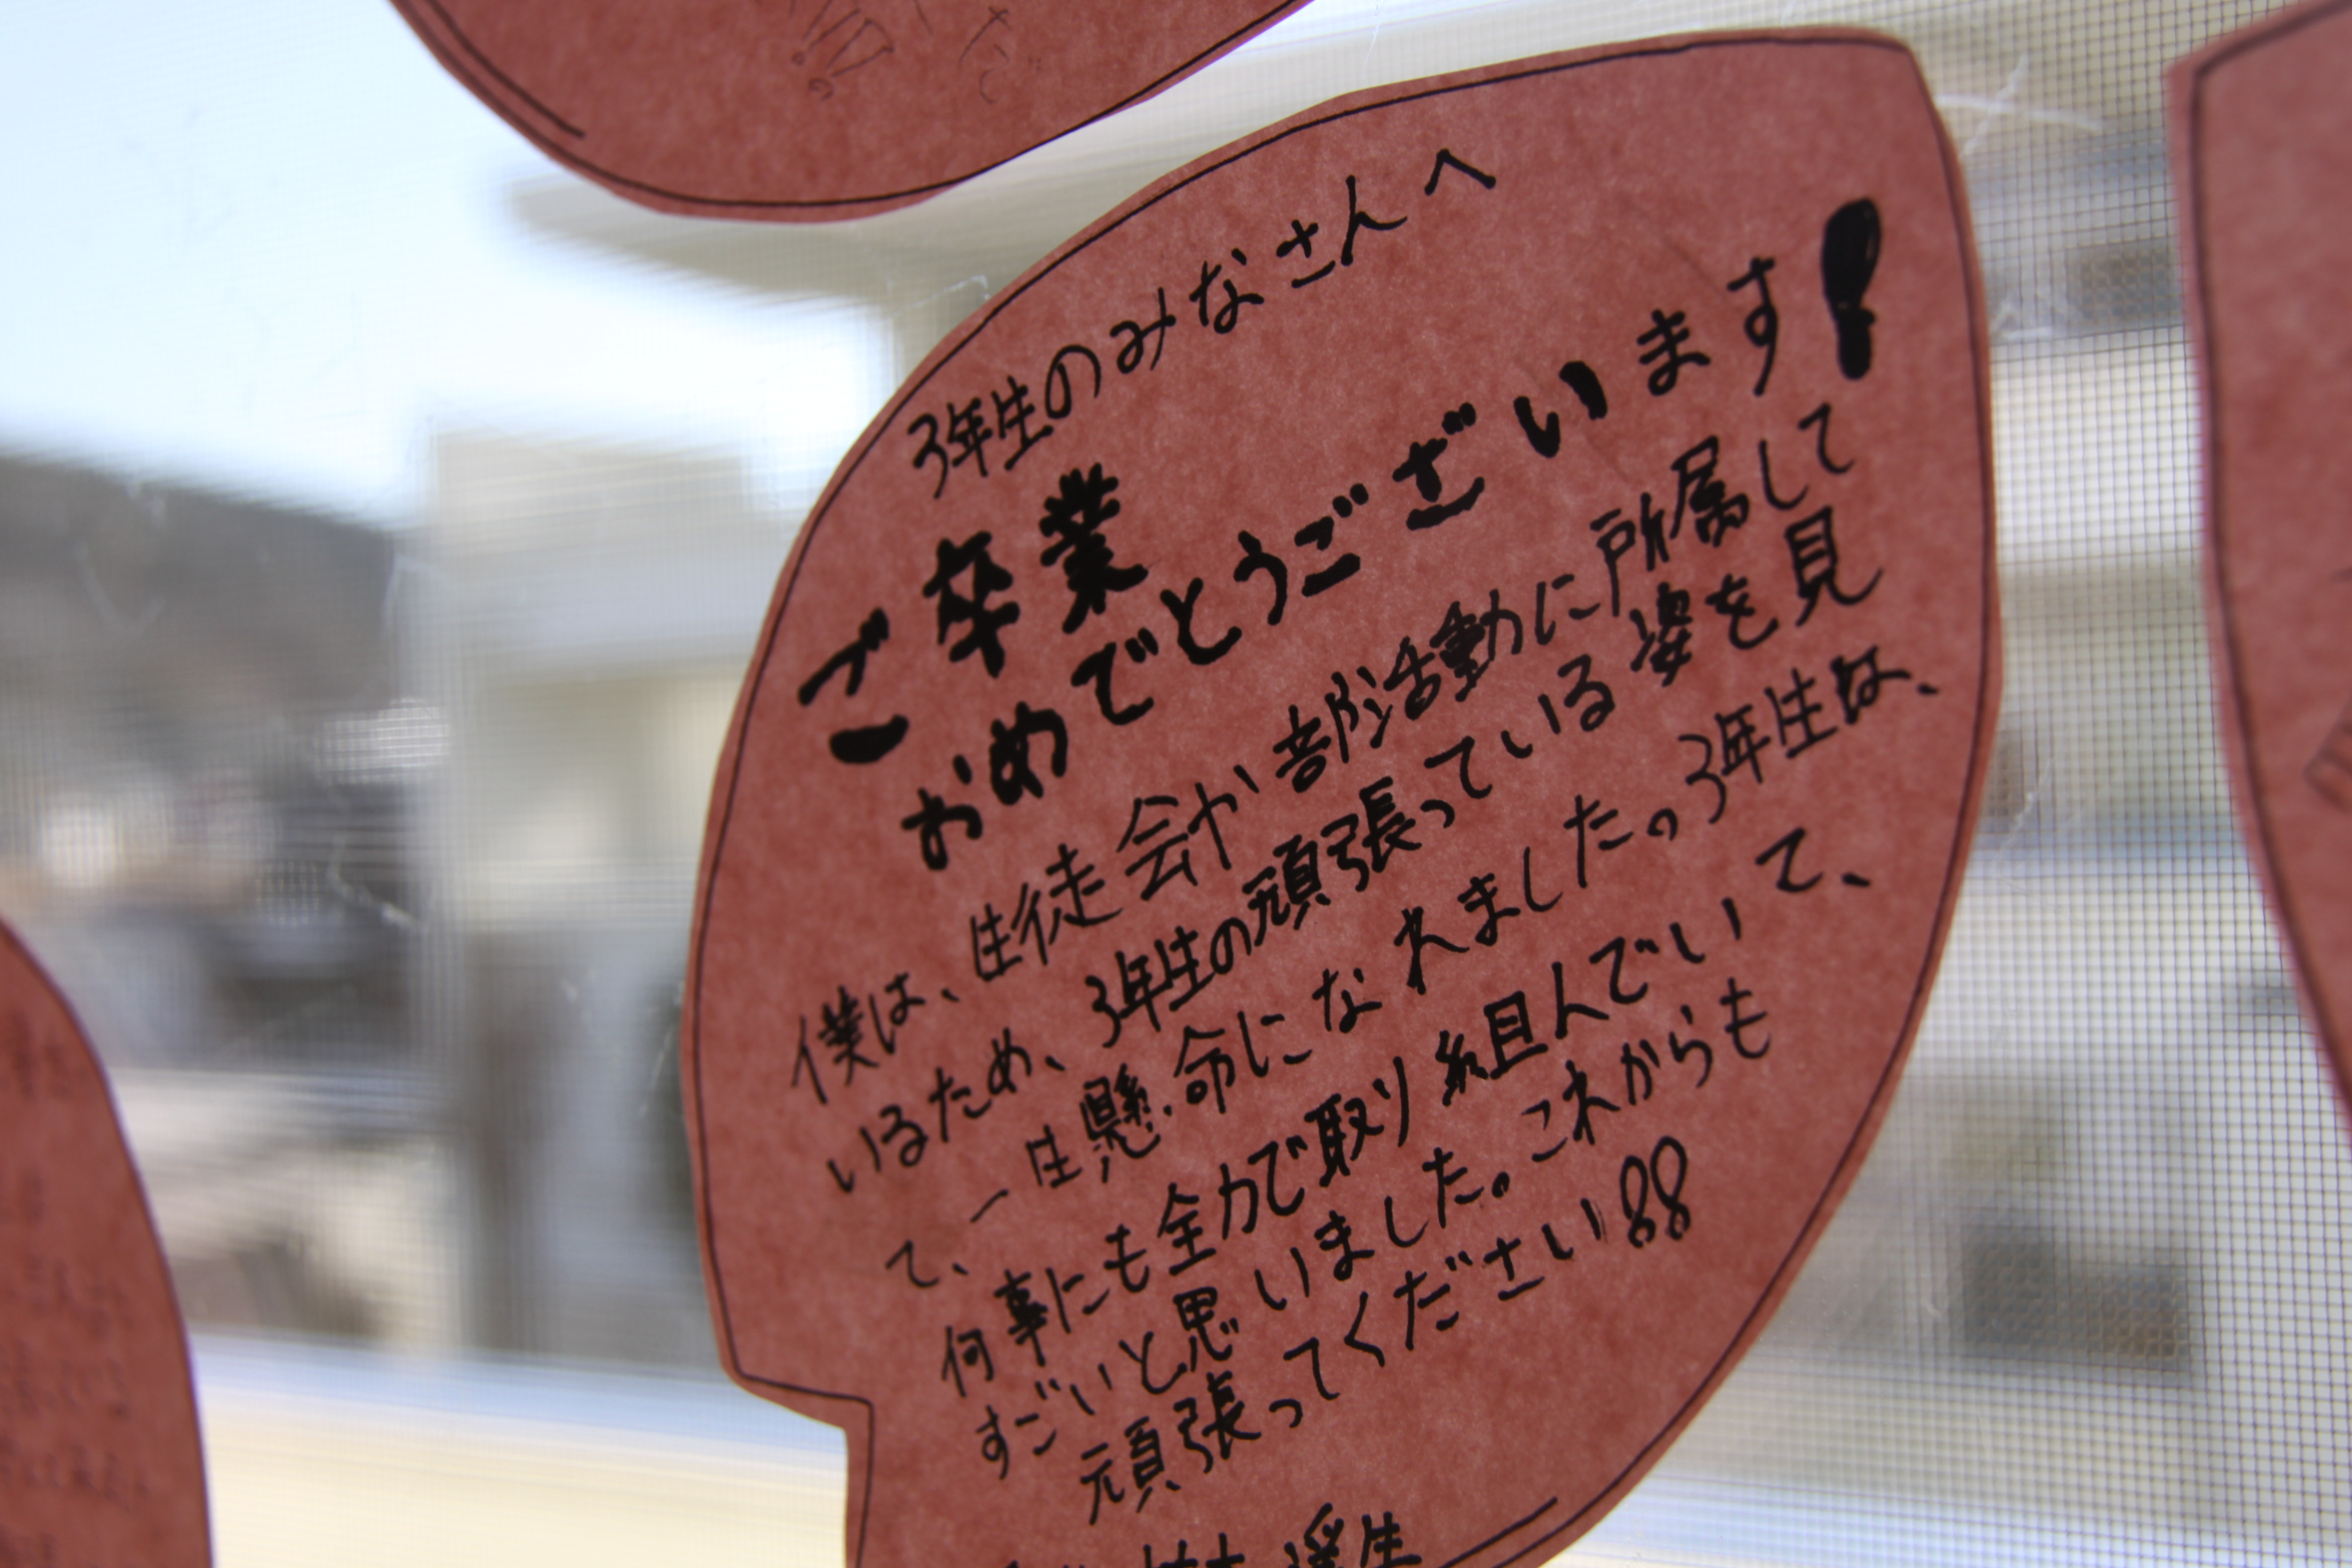 3年生のみなさんへ
ご卒業
おめでとうございます!
僕は、生徒会や部活動に所属して
いるため、3年生の頑張っている姿を見
て、一生懸命になれました。3年生は、
何事にも全力で取り組んでいて、
すごいと思いました。これからも
頑張ってください!!